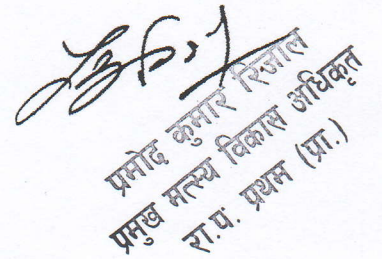 प्रमोद कुमार रिजाल
प्रमुख मत्स्य विकास अधिकृत
रा.प. प्रथम (प्रा.)